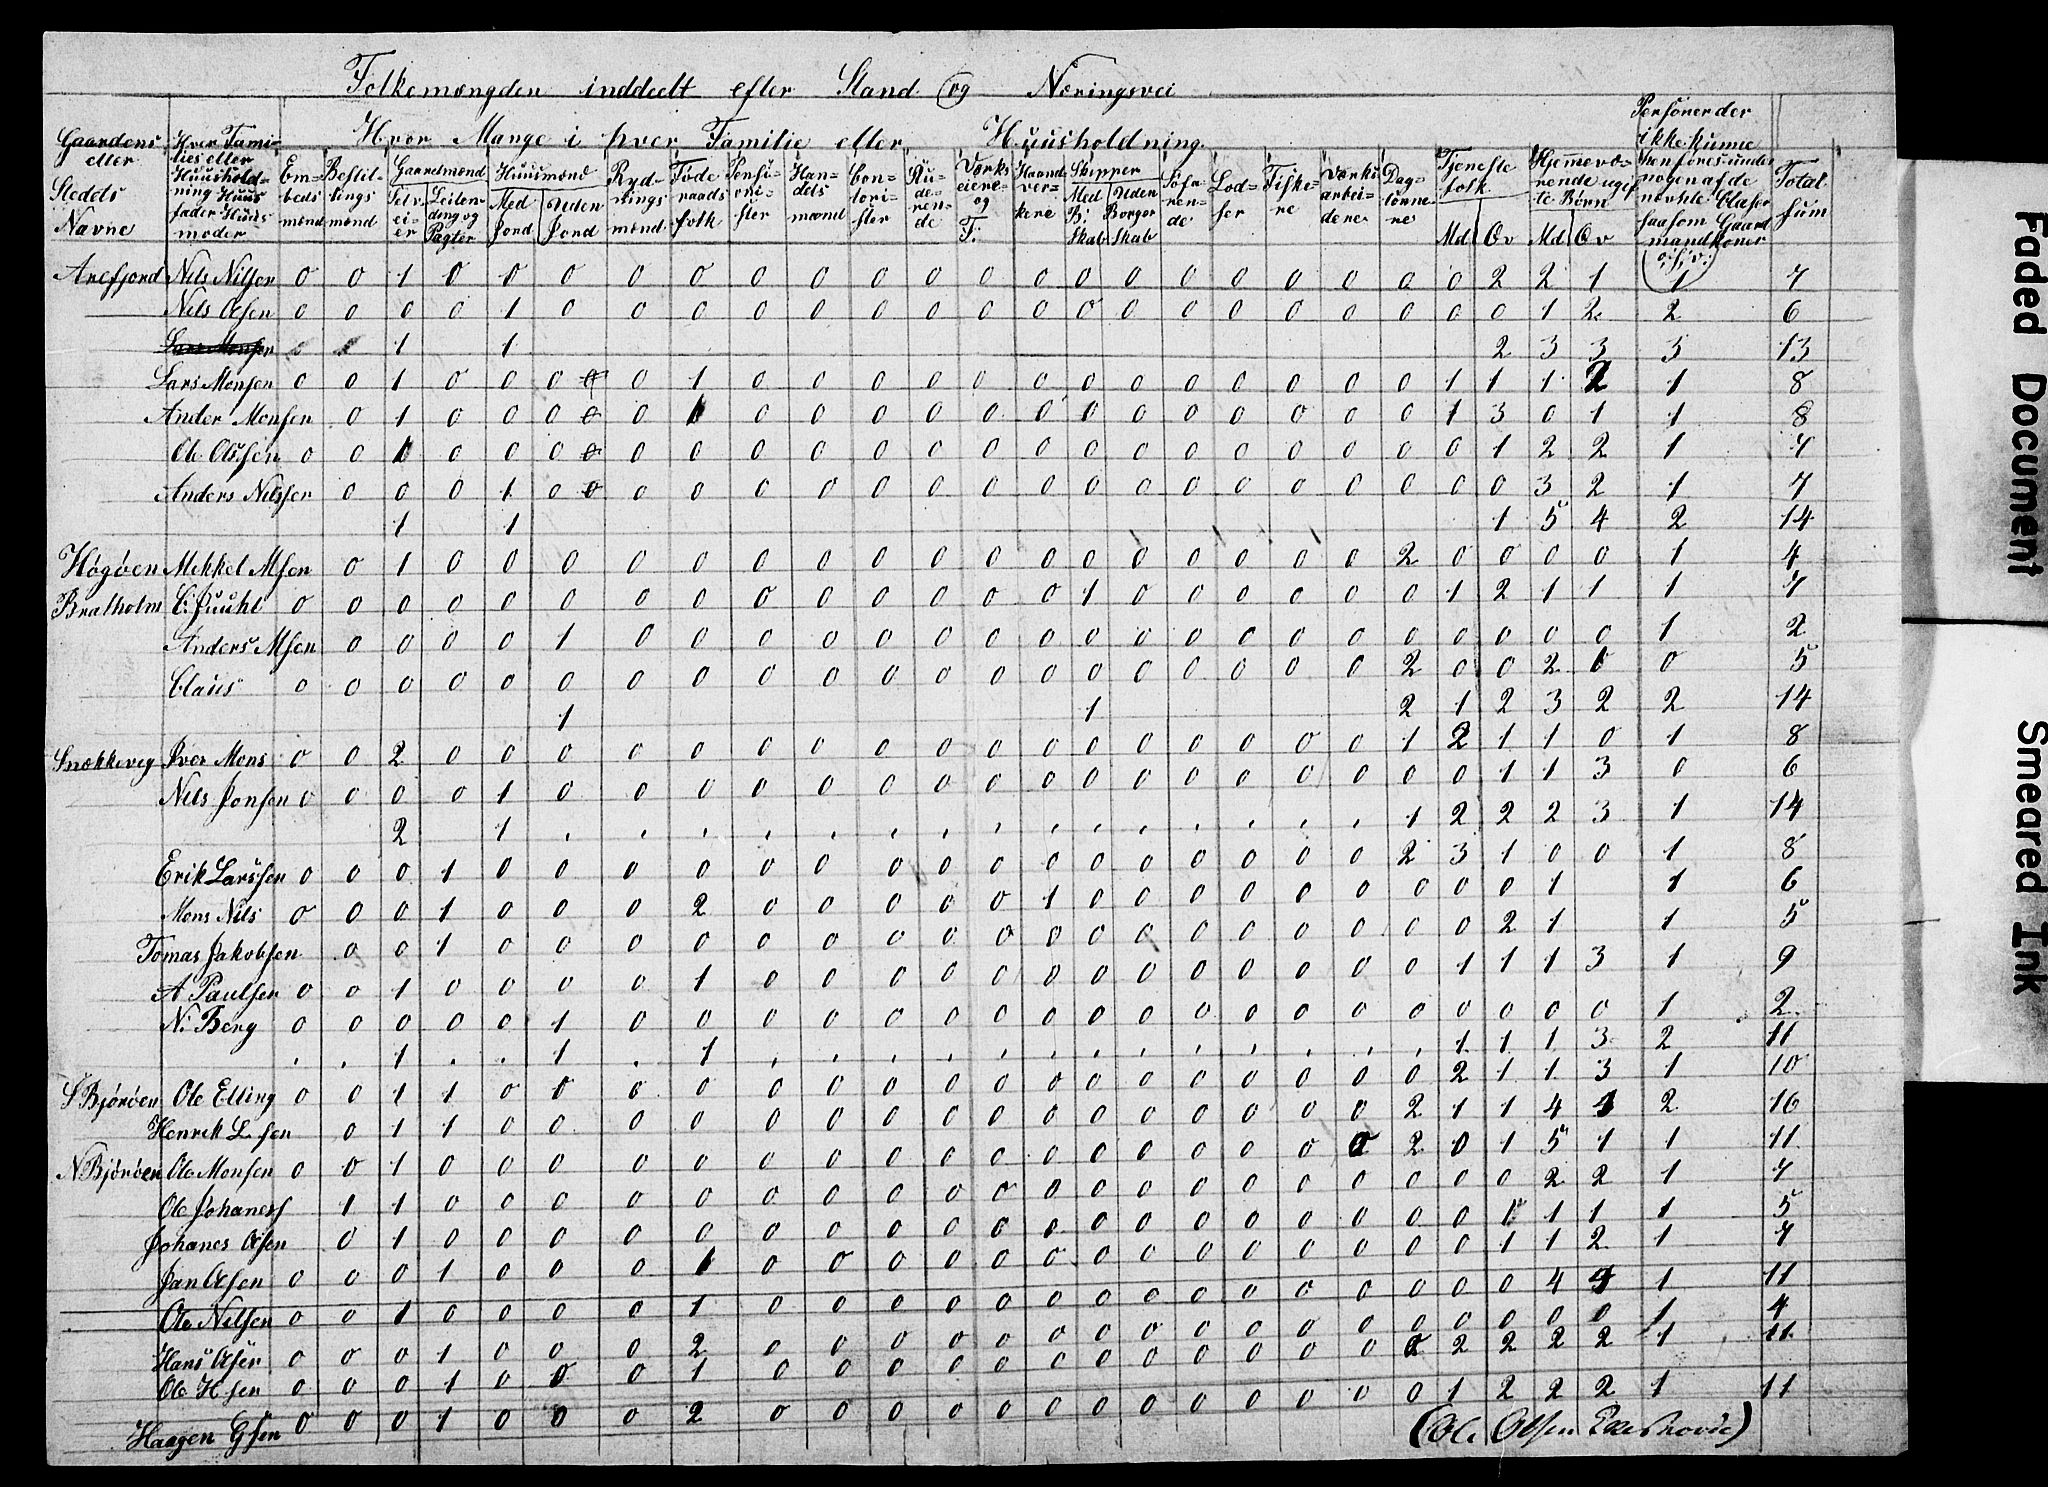 Folkemængden inddeelt efter Stand og Næringsvei
Hvor Mange i hver Familie eller Huusholdning
Gaardens eller Stedets Navne
Hver Families eller Huusholdning Huusfader Huusmoder
Embedsmænd
Bestillingsmænd
Gaardmænd
Selveier
Leilending og Pagter
Huusmænd
Med Jord
Uden Jord
Rydningsmænd
Føderaadsfolk
Pensionister
Handelsmænd
Contorister
Studerende
Værkseiere og F:
Haandverkere
Skipper
Med B: Skab
Uden Borgerskab
Søfarende
Lodser
Fiskere
Værksarbeidere
Daglønnere
Tjenestefolk
Md Qv
Hjemmeværende ugifte Børn
Md Qv
Personer der ikke kunne henføres under nogen af de nævnte Classer saasom Gaardmandkoner o.s.v.
Total Sum
Arefjord Nils Nilsen 0 0 1 0 0 0 0 0 0 0 0 0 0 0 0 0 0 0 0 0 0 0 2 2 1 1 7
Nils Olsen 0 0 0 0 1 0 0 0 0 0 0 0 0 0 0 0 0 0 0 0 0 0 0 1 2 2 6
Lars Monsen 1 1 2 3 3 3 13
Lars Monsen 0 0 1 0 0 0 0 0 1 0 0 0 0 0 0 0 0 0 0 0 0 0 1 1 1 2 1 8
Ander Monsen 0 1 0 0 0 0 0 1 0 0 0 0 0 0 0 0 0 0 0 0 0 1 3 0 1 1 8
Ole Olsen 0 0 1 0 0 0 0 0 0 0 0 0 0 0 0 0 0 0 0 0 0 0 0 1 2 2 1 7
Anders Nilssen 0 0 0 1 0 0 0 0 0 0 0 0 0 0 0 0 0 0 0 0 0 0 0 3 2 1 7
1 1 1 5 4 2 14
Høgøen Mekkel Msen 0 1 0 0 0 0 0 0 0 0 0 0 0 0 0 0 0 0 0 0 2 0 0 0 0 1 4
Bratholm C. Juuhl 0 0 0 0 0 0 0 0 0 0 0 0 0 0 1 0 0 0 0 0 0 1 2 1 1 1 7
Anders Msen 0 0 0 0 1 0 0 0 0 0 0 0 0 0 0 0 0 0 0 0 0 0 0 0 1 2
Claus 0 0 0 0 0 0 0 0 0 0 0 0 0 0 0 0 0 0 0 0 2 0 0 2 1 0 5
1 1 2 1 2 3 2 2 14
Snekkeveg Iver Mons 0 0 2 0 0 0 0 0 0 0 0 0 0 0 0 0 0 0 0 0 1 2 1 1 0 1 8
Nils Jonsen 0 0 0 0 1 0 0 0 0 0 0 0 0 0 0 0 0 0 0 0 0 0 1 1 3 0 6
2 1 1 2 2 2 3 1 14
Erik Larssen 0 0 0 1 0 0 0 0 0 0 0 0 0 0 0 0 0 0 0 0 2 3 1 0 0 1 8
Mons Nils 0 0 0 1 0 0 0 2 0 0 0 0 0 1 0 0 0 0 0 0 0 0 0 1 1 6
Tomas Jakobsen 0 0 1 0 0 0 0 0 0 0 0 0 0 0 0 0 0 0 0 0 0 2 1 1 5
A Paulsen 0 0 1 0 0 0 0 1 0 0 0 0 0 0 0 0 0 0 0 0 0 1 1 1 3 1 9
N. Berg 0 0 0 0 0 1 0 0 0 0 0 0 0 0 0 0 0 0 0 0 0 0 0 0 0 1 2
1 1 1 1 1 1 3 2 11
S Bjørøen Ole Elling 0 0 1 1 0 0 0 0 0 0 0 0 0 0 0 0 0 0 0 0 0 2 1 1 3 1 10
Henrik L sen 0 1 1 0 0 0 0 0 0 0 0 0 0 0 0 0 0 0 0 2 1 1 4 2 16
N Bjørøen Ole Monsen 0 0 1 0 0 0 0 0 0 0 0 0 0 0 0 0 0 0 0 0 2 0 1 5 1 1 11
Ole Johanesf 1 1 0 0 0 0 0 0 0 0 0 0 0 0 0 0 0 0 0 0 0 0 2 2 1 7
Johanes Olsen 0 1 0 0 0 0 0 0 0 0 0 0 0 0 0 0 0 0 0 0 0 1 1 1 1 5
Jan Olsen 0 0 0 1 0 0 0 1 0 0 0 0 0 0 0 0 0 0 0 0 0 0 1 1 2 1 7
Ole Nilsen 0 0 1 0 0 0 0 1 0 0 0 0 0 0 0 0 0 0 0 0 0 0 0 4 4 1 11
Hans Olsen 0 0 0 1 0 0 0 2 0 0 0 0 0 0 0 0 0 0 0 0 0 0 0 0 0 1 4
Ole H sen 0 0 0 1 0 0 0 1 0 0 0 0 0 0 0 0 0 0 0 0 2 2 2 2 1 11
Haagen G sen 0 0 0 1 0 0 0 2 0 0 0 0 0 0 0 0 0 0 0 0 0 1 2 2 2 1 11
(Ole Olsen Ekerhovd)
Faded Document
Smeared Ink